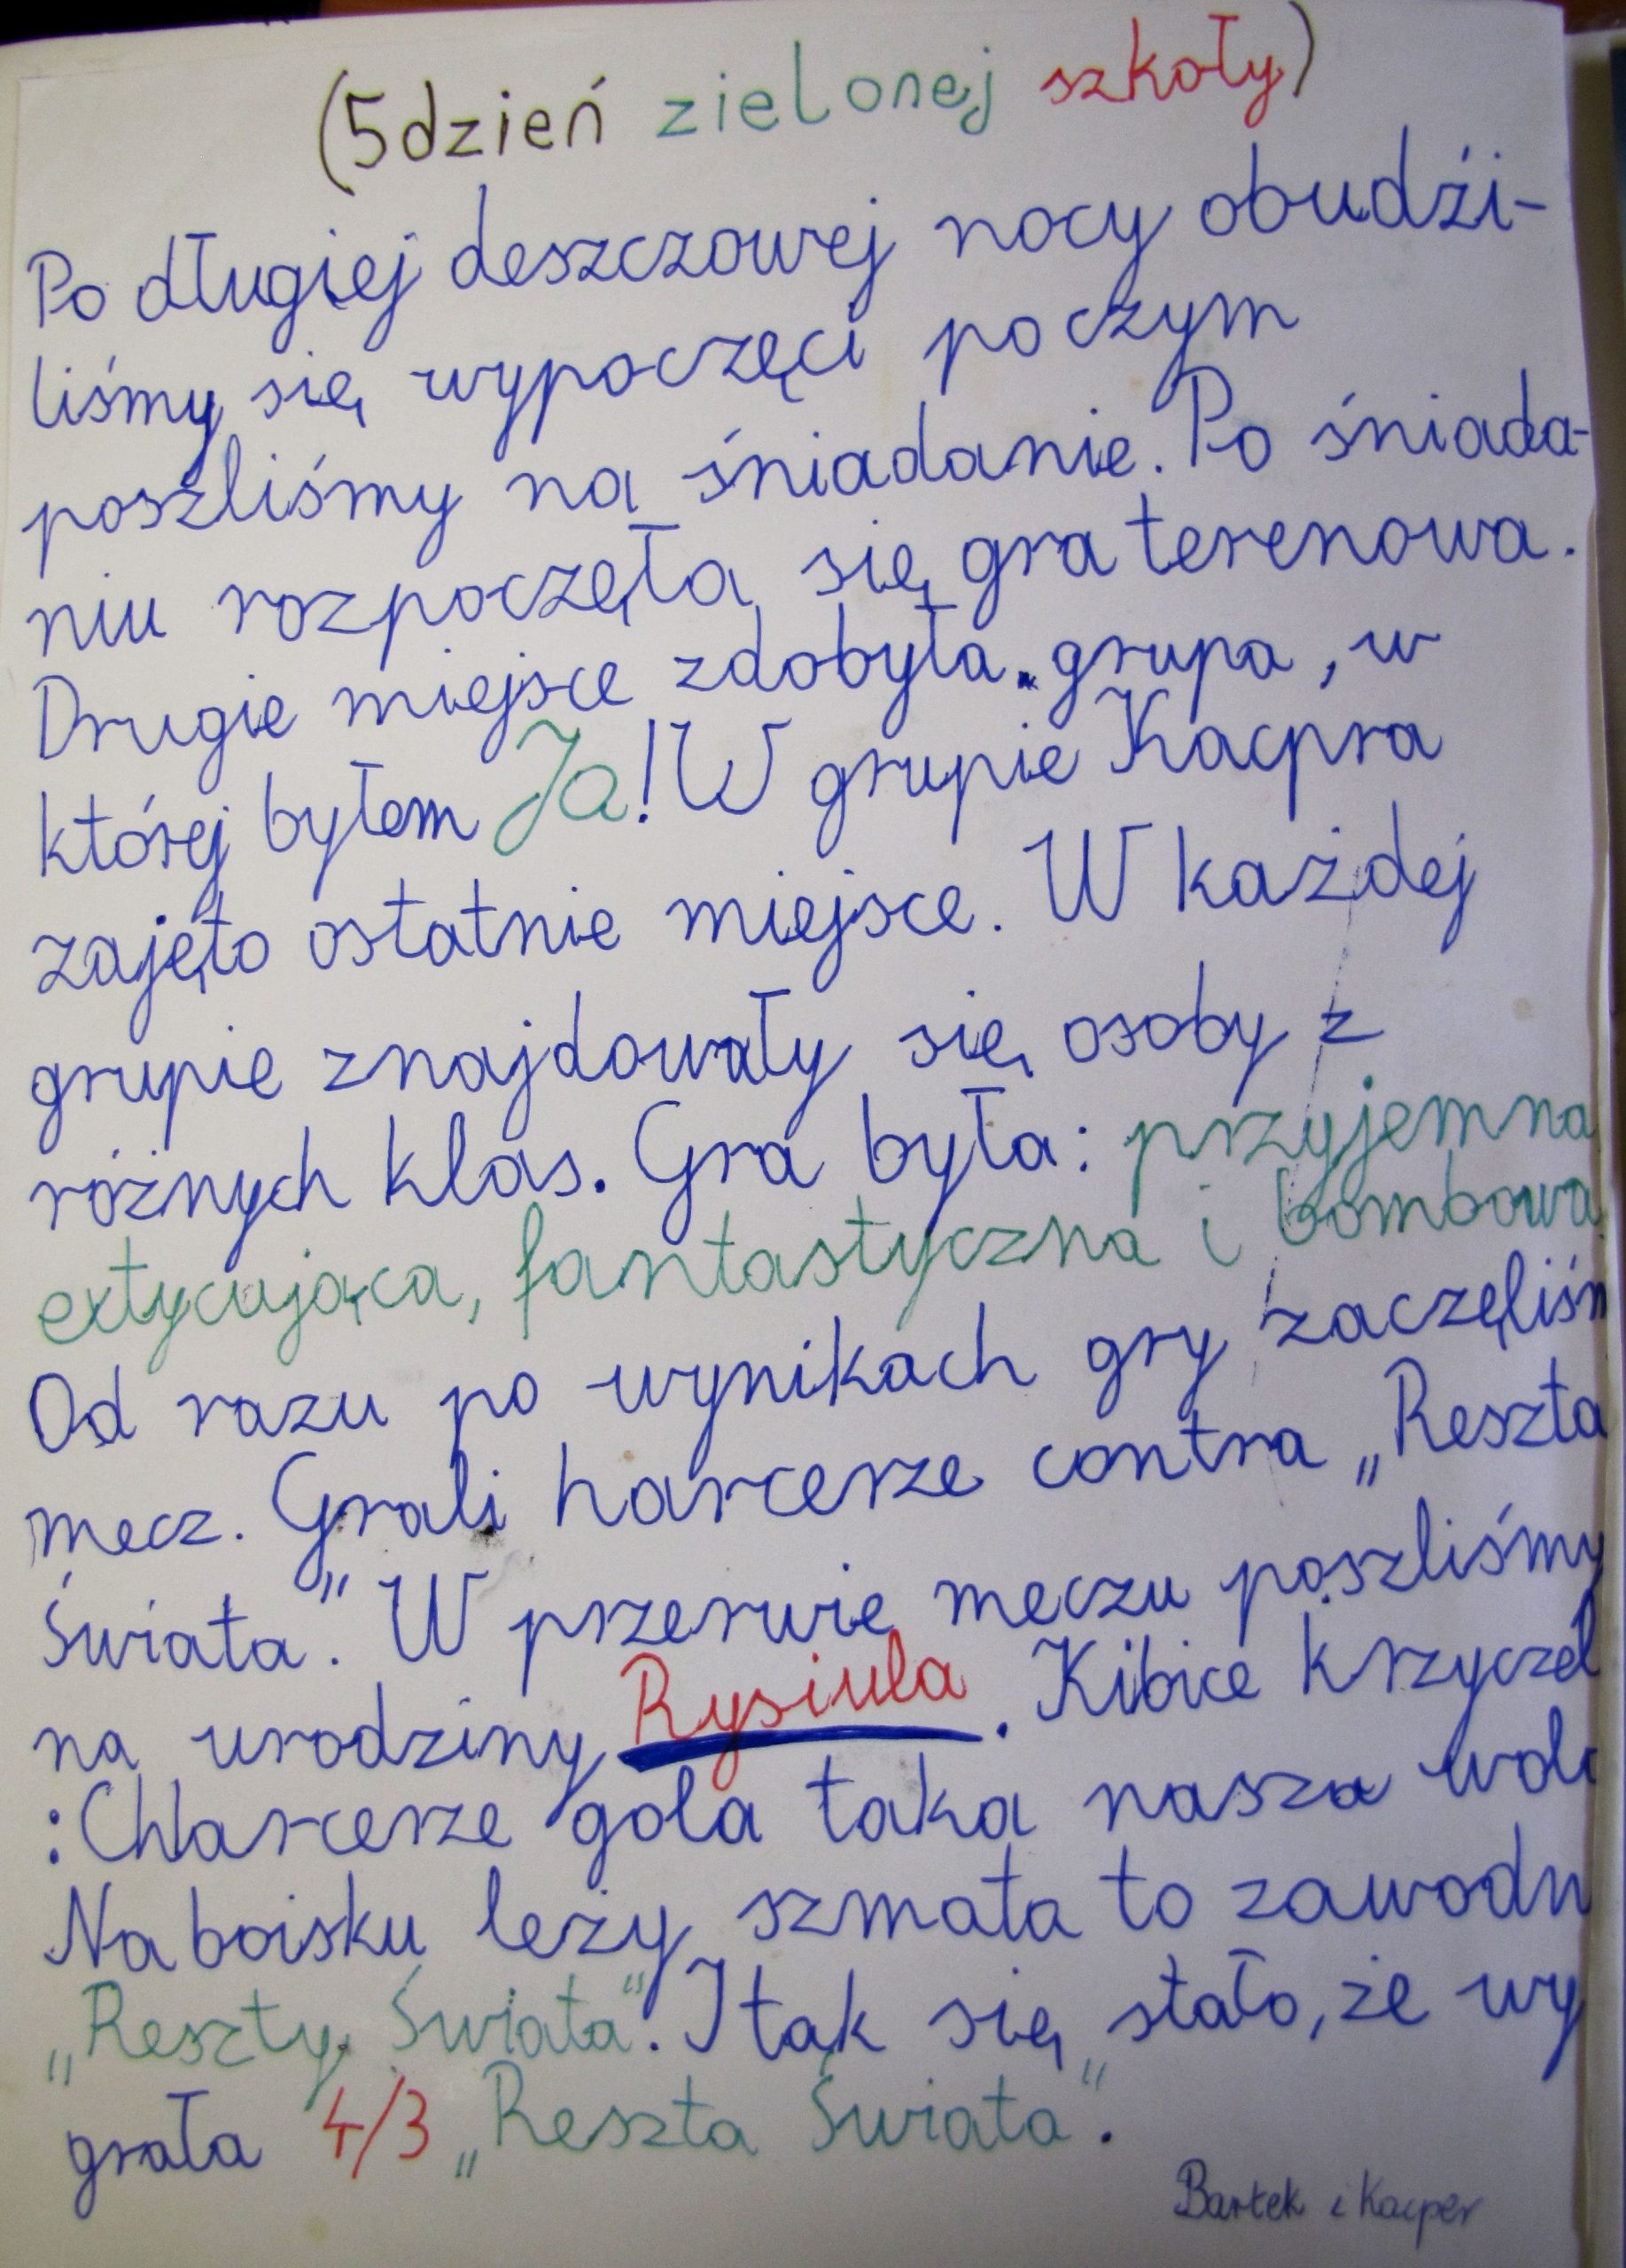 (5dzień zielonej szkoły)
Po długiej deszczowej nocy obudźi-
liśmy się wypoczęci poczym
poszliśmy na śniadanie. Po śniada-
niu rozpoczęła się gra terenowa.
Drugie miejsce zdobyła grupa, w
której byłem Ja! W grupie Kacpra
zajęto ostatnie miejsce. W każdej
grupie znajdowały się osoby z
różnych klas. Gra była: przyjemna
extycująca, fantastyczna i bombowa
Od razu po wynikach gry zaczęliśm
mecz. Grali harcerze contra „Reszta
Świata". W przerwie meczu poszliśmy
na urodziny Rysiula. Kibice krzyczel
: Chlarcerze gola taka nasza wola
Na boisku leży szmata to zawodn
„Reszty Świata". I tak się stało, że wy
grała 4/3 „Reszta Świata".
Bartek i Kacper